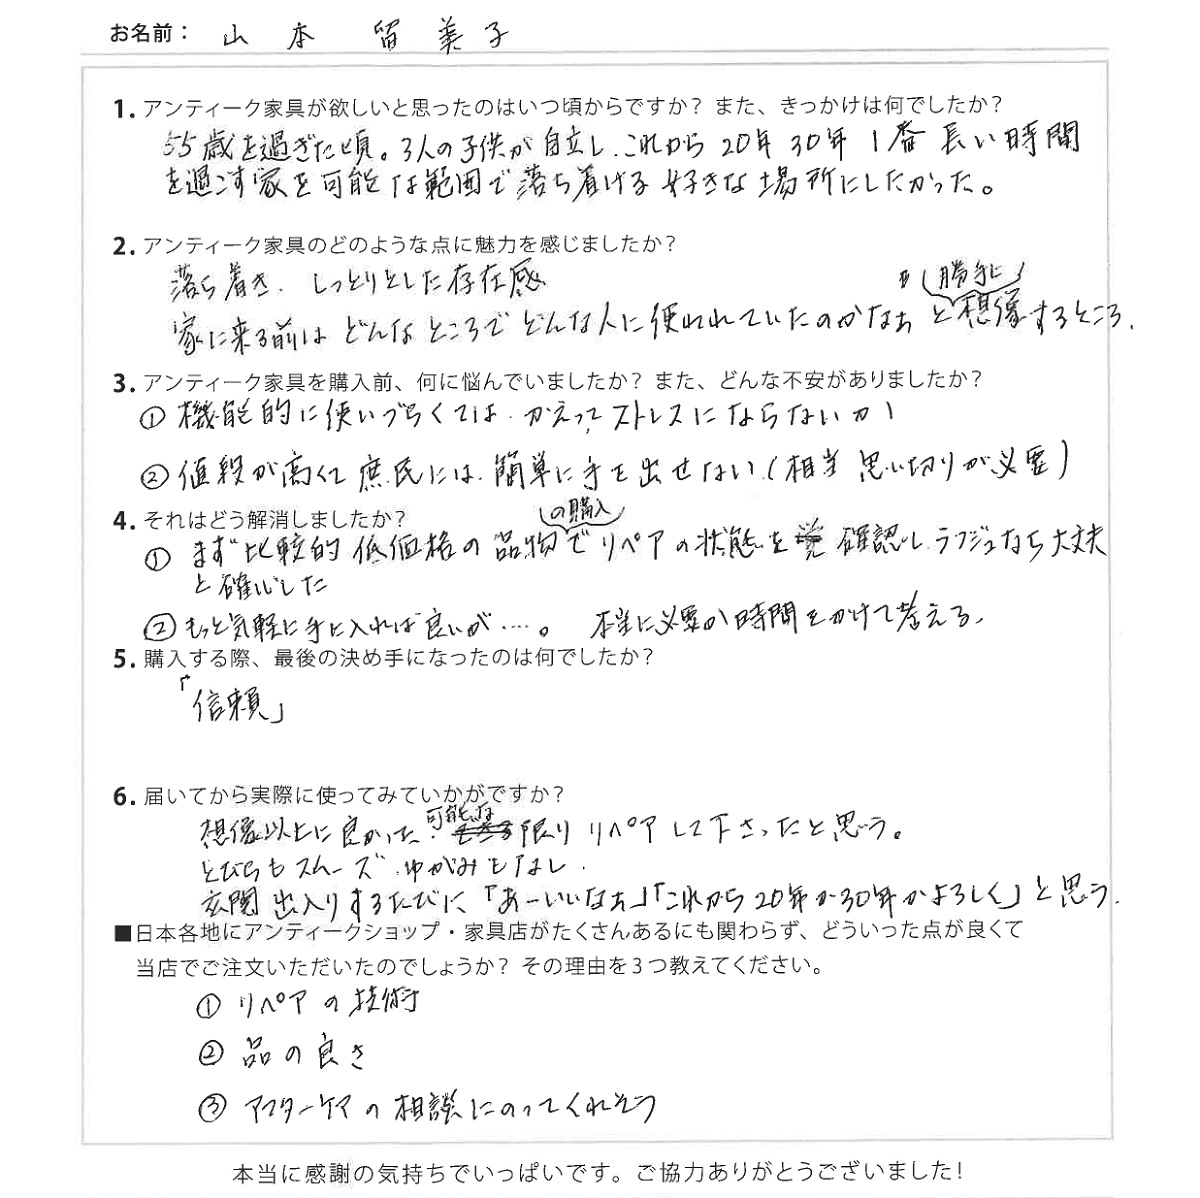 お名前： 山本 留美子
1. アンティーク家具が欲しいと思ったのはいつ頃からですか？ また、きっかけは何でしたか？
55歳を過ぎた頃。3人の子供が自立し、これから20年30年1番長い時間
を過ごす家を可能な範囲で落ち着ける好きな場所にしたかった。
2. アンティーク家具のどのような点に魅力を感じましたか？
落ち着き、しっとりとした存在感
勝手に
家に来る前はどんなところでどんな人に使われていたのかなぁと想像するところ。
3. アンティーク家具を購入前、何に悩んでいましたか？ また、どんな不安がありましたか？
① 機能的に使いづらくては、かえってストレスにならないか
② 値段が高くて庶民には簡単に手を出せない（相当思い切りが必要）
4. それはどう解消しましたか？
の購入
① まず比較的低価格の品物でリペアの状態を 確認し、ラフジュなら大丈夫
と確心した
② もっと気軽に手に入れば良いが…。 本当に必要か時間をかけて考える。
5. 購入する際、最後の決め手になったのは何でしたか？
「信頼」
6. 届いてから実際に使ってみていかがですか？
可能な
想像以上に良かった。限りリペアして下さったと思う。
とびらもスムーズ、ゆがみもなし、
玄関出入りするたびに「あーいいなぁ」「これから20年か30年かよろしく」と思う。
■日本各地にアンティークショップ・家具店がたくさんあるにも関わらず、どういった点が良くて
当店でご注文いただいたのでしょうか？ その理由を3つ教えてください。
① リペアの技術
② 品の良さ
③ アフターケアの相談にのってくれそう
本当に感謝の気持ちでいっぱいです。ご協力ありがとうございました！